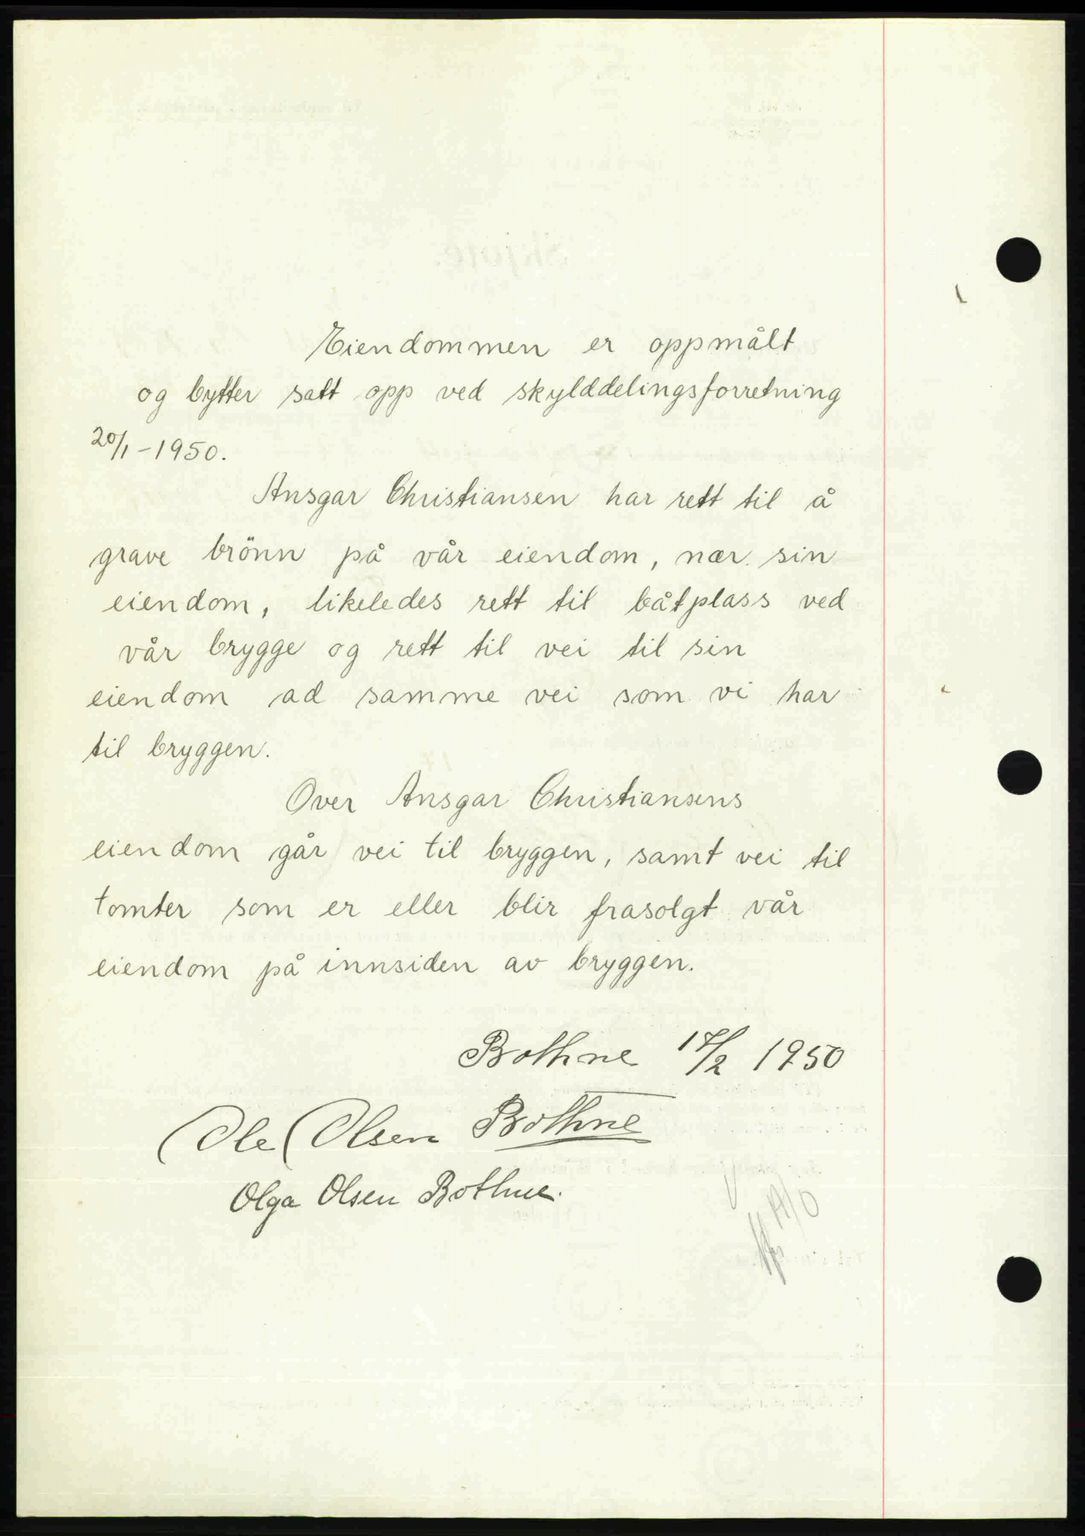 Eiendommen er oppmålt
og bytter satt opp ved skylddelingsforretning
20/1-1950.
Ansgar Christiansen har rett til å
grave brönn på vår eiendom, nær sin
eiendom, likeledes rett til båtplass ved
vår brygge og rett til vei til sin
eiendom ad samme vei som vi har
til bryggen.
Over Ansgar Christiansens
eiendom går vei til bryggen, samt vei til
tomter som er eller blir frasolgt vår
eiendom på innsiden av bryggen.
Bothne 17/2 1950
Ole Olsen Bothne
Olga Olsen Bothne.